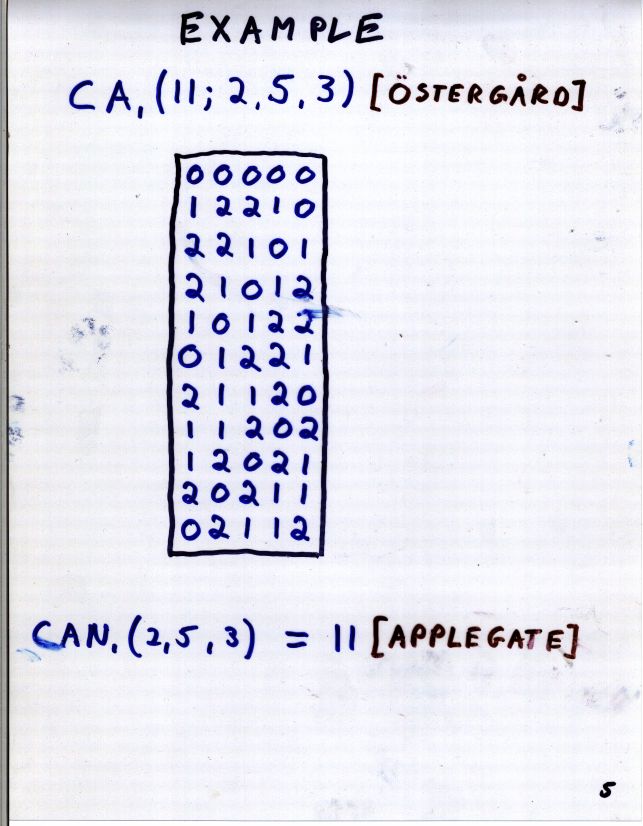 EXAMPLE
CA, (11; 2,5,3) [ÖSTERGÅRD]
0 0 0 0 0
1 2 2 1 0
2 2 1 0 1
2 1 0 1 2
1 0 1 2 2
0 1 2 2 1
2 1 1 2 0
1 1 2 0 2
1 2 0 2 1
2 0 2 1 1
0 2 1 1 2
CAN, (2,5,3) = 11 [APPLEGATE]
5